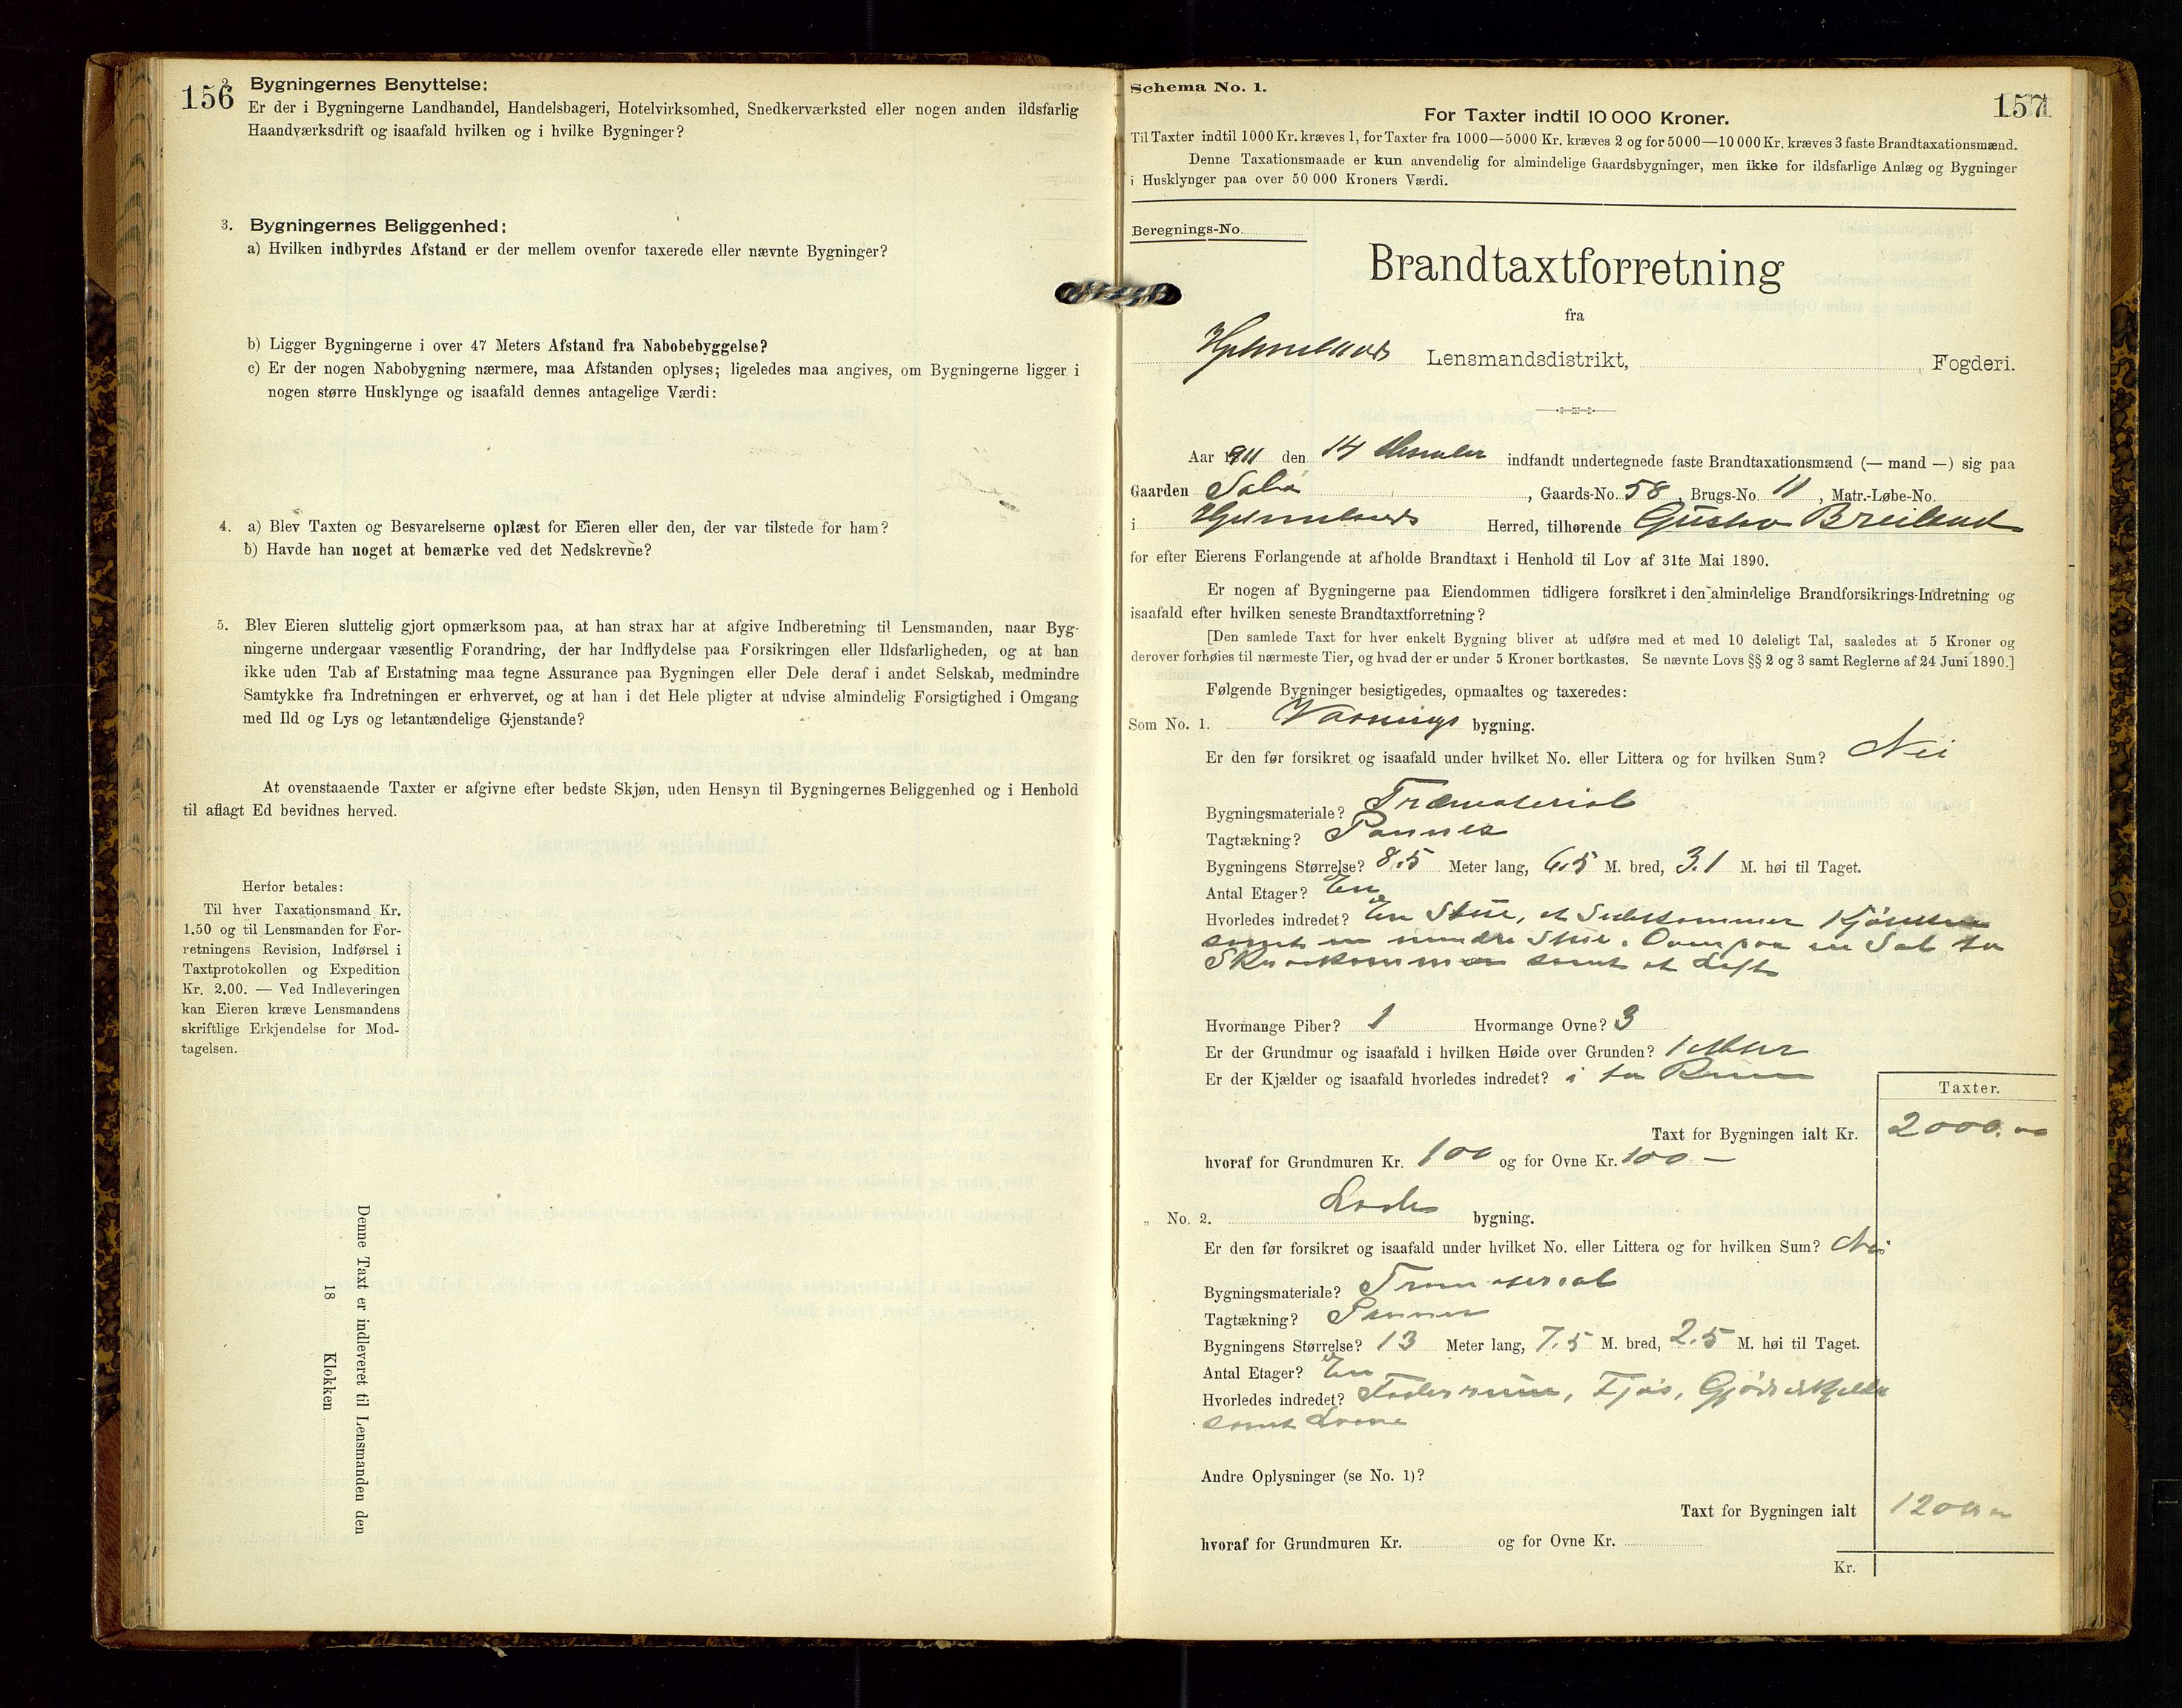 156
2. Bygningernes Benyttelse:
Er der i Bygningerne Landhandel, Handelsbageri, Hotelvirksomhed, Snedkerværksted eller nogen anden ildsfarlig
Haandværksdrift og isaafald hvilken og i hvilke Bygninger?
3. Bygningernes Beliggenhed:
a) Hvilken indbyrdes Afstand er der mellem ovenfor taxerede eller nævnte Bygninger?
b) Ligger Bygningerne i over 47 Meters Afstand fra Nabobebyggelse?
c) Er der nogen Nabobygning nærmere, maa Afstanden oplyses; ligeledes maa angives, om Bygningerne ligger i
nogen større Husklynge og isaafald dennes antagelige Værdi:
4. a) Blev Taxten og Besvarelserne oplæst for Eieren eller den, der var tilstede for ham?
b) Havde han noget at bemærke ved det Nedskrevne?
5. Blev Eieren sluttelig gjort opmærksom paa, at han strax har at afgive Indberetning til Lensmanden, naar Byg-
ningerne undergaar væsentlig Forandring, der har Indflydelse paa Forsikringen eller Ildsfarligheden, og at han
ikke uden Tab af Erstatning maa tegne Assurance paa Bygningen eller Dele deraf i andet Selskab, medmindre
Samtykke fra Indretningen er erhvervet, og at han i det Hele pligter at udvise almindelig Forsigtighed i Omgang
med Ild og Lys og letantændelige Gjenstande?
At ovenstaaende Taxter er afgivne efter bedste Skjøn, uden Hensyn til Bygningernes Beliggenhed og i Henhold
til aflagt Ed bevidnes herved.
Herfor betales:
Til hver Taxationsmand Kr.
1.50 og til Lensmanden for For-
retningens Revision, Indførsel i
Taxtprotokollen og Expedition
Kr. 2.00. — Ved Indleveringen
kan Eieren kræve Lensmandens
skriftlige Erkjendelse for Mod-
tagelsen.
Denne Taxt er indleveret til Lensmanden den
18 Klokken
Schema No. 1.
157
For Taxter indtil 10 000 Kroner.
Til Taxter indtil 1000 Kr. kræves 1, for Taxter fra 1000—5000 Kr. kræves 2 og for 5000—10 000 Kr. kræves 3 faste Brandtaxationsmænd.
Denne Taxationsmaade er kun anvendelig for almindelige Gaardsbygninger, men ikke for ildsfarlige Anlæg og Bygninger
i Husklynger paa over 50 000 Kroners Værdi.
Beregnings-No.
Brandtaxtforretning
fra
Hjelmelands Lensmandsdistrikt, Fogderi.
Aar 1911 den 14 indfandt undertegnede faste Brandtaxationsmænd (— mand —) sig paa
Gaarden , Gaards-No. 58, Brugs-No. 11, Matr.-Løbe-No.
i Hjelmelands Herred, tilhørende Gustav Breiland
for efter Eierens Forlangende at afholde Brandtaxt i Henhold til Lov af 31te Mai 1890.
Er nogen af Bygningerne paa Eiendommen tidligere forsikret i den almindelige Brandforsikrings-Indretning og
isaafald efter hvilken seneste Brandtaxtforretning?
[Den samlede Taxt for hver enkelt Bygning bliver at udføre med et med 10 deleligt Tal, saaledes at 5 Kroner og
derover forhøies til nærmeste Tier, og hvad der er under 5 Kroner bortkastes. Se nævnte Lovs §§ 2 og 3 samt Reglerne af 24 Juni 1890.]
Følgende Bygninger besigtigedes, opmaaltes og taxeredes:
Som No. 1. Vaanings bygning.
Er den før forsikret og isaafald under hvilket No. eller Littera og for hvilken Sum? Nei
Bygningsmateriale? Træmaterial
Tagtækning? Panner
Bygningens Størrelse? 8.5 Meter lang, 6.5 M. bred, 3.1 M. høi til Taget.
Antal Etager? En
Hvorledes indredet? En Stue, et Sidekammer Kjøkken
samt en mindre Stue. Ovenpaa en Sal to
samt et Loft
Hvormange Piber? 1 Hvormange Ovne? 3
Er der Grundmur og isaafald i hvilken Høide over Grunden? 1 Meter
Er der Kjælder og isaafald hvorledes indredet? i to Rum
Taxter.
Taxt for Bygningen ialt Kr. 2000.00
hvoraf for Grundmuren Kr. 100 og for Ovne Kr. 100 —
„ No. 2. Lade bygning.
Er den før forsikret og isaafald under hvilket No. eller Littera og for hvilken Sum? Nei
Bygningsmateriale? Træmaterial
Tagtækning? Panner
Bygningens Størrelse? 13 Meter lang, 7.5 M. bred, 2.5 M. høi til Taget.
Antal Etager? En
Hvorledes indredet? Foderrum, Fjøs, Gjødselkjelder
samt Laave
Andre Oplysninger (se No. 1)?
Taxt for Bygningen ialt 1200
hvoraf for Grundmuren Kr. og for Ovne Kr.
Kr.